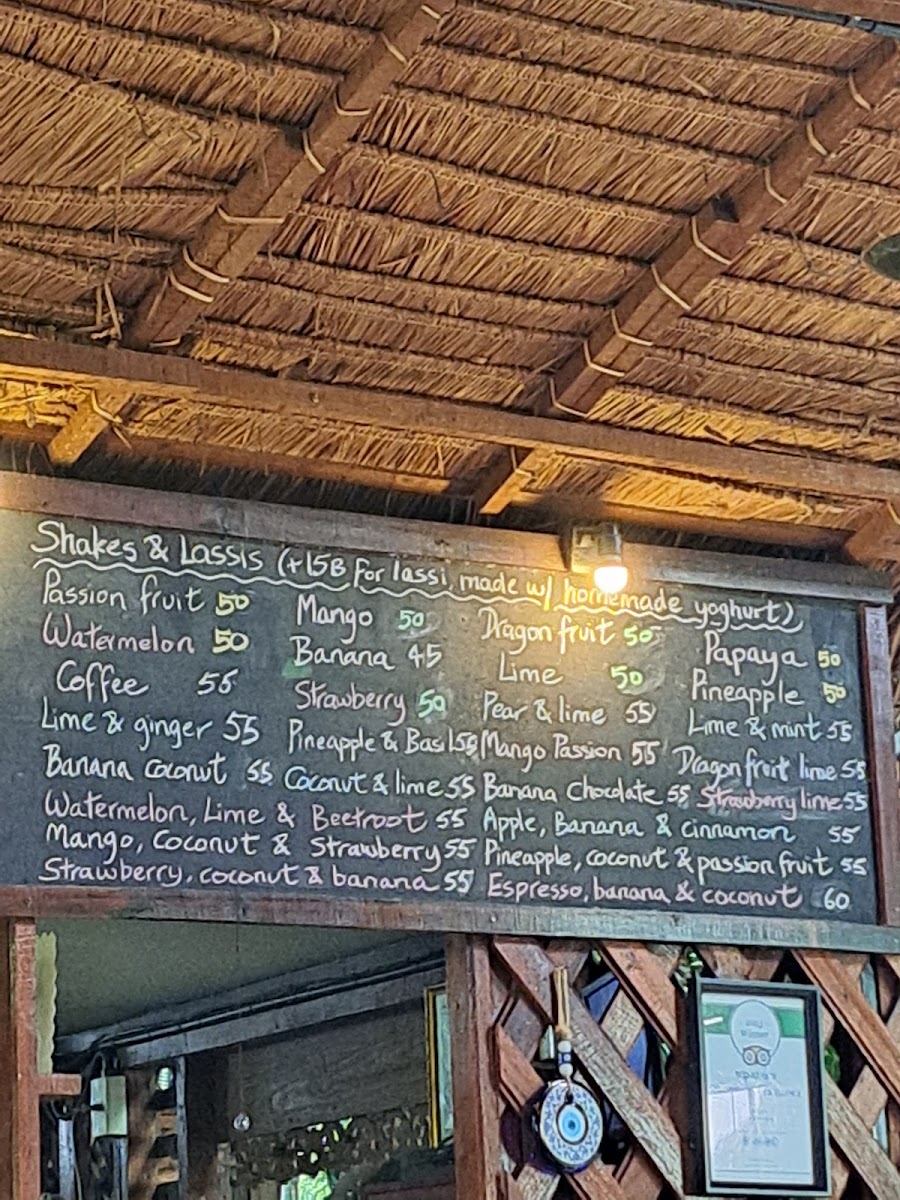 Shakes & Lassis (+15B for lassi, made w/ homemade yoghurt)
Passion fruit 50 Mango 50 Dragon fruit 50 Papaya 50
Watermelon 50 Banana 45 Lime 50 Pineapple 50
Coffee 55 Strawberry 50 Pear & lime 55 Lime & mint 55
Lime & ginger 55 Pineapple & Basil 55 Mango Passion 55 Dragon fruit lime 55
Banana coconut 55 Coconut & lime 55 Banana Chocolate 55 Strawberry lime 55
Watermelon, Lime & Beetroot 55 Apple, Banana & cinnamon 55
Mango, Coconut & Strawberry 55 Pineapple, coconut & passion fruit 55
Strawberry, coconut & banana 55 Espresso, banana & coconut 60